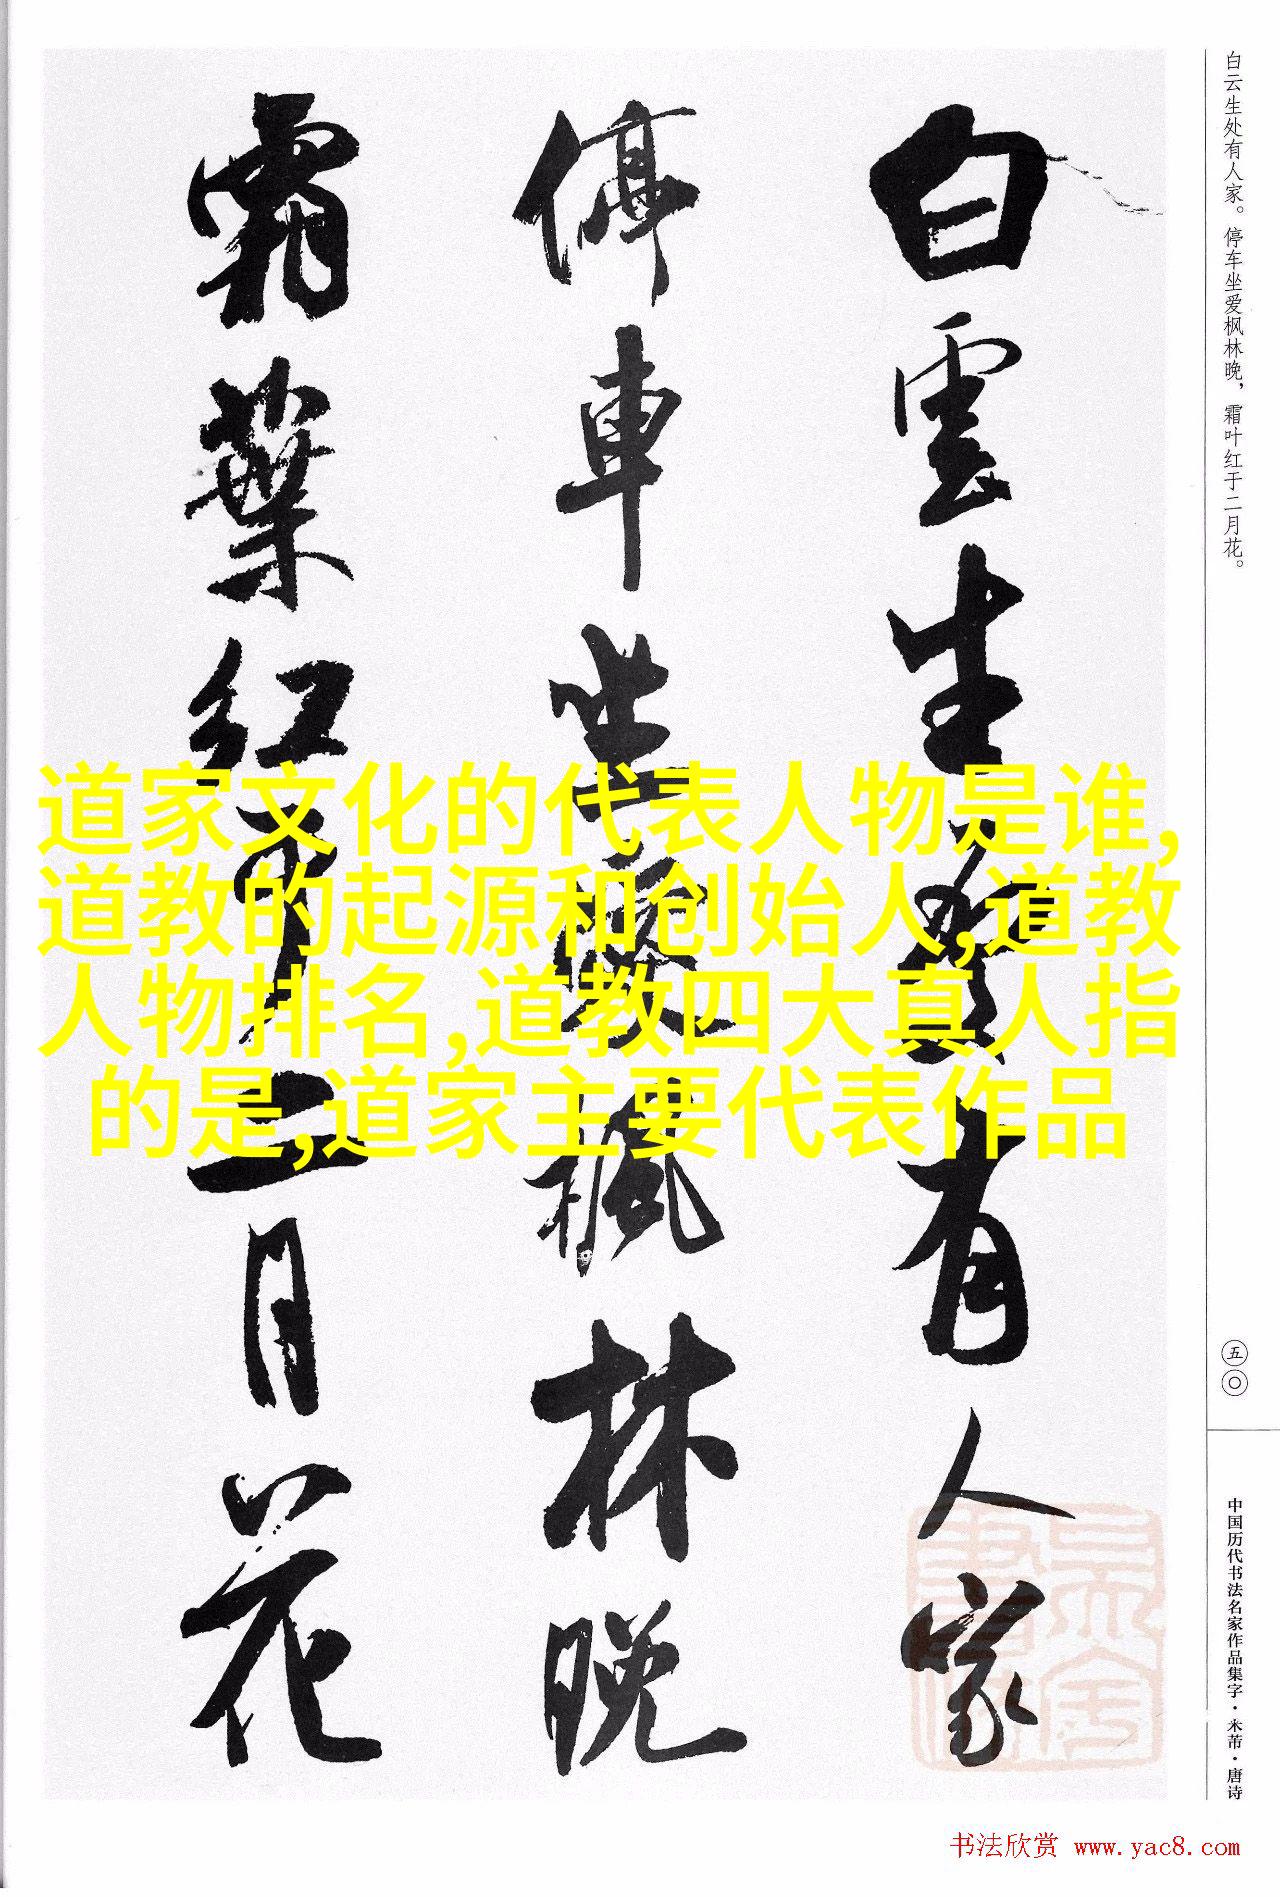 白雲生處有人家
停車坐愛楓林晚
霜葉紅於二月花
白云生处有人家。停车坐爱枫林晚，霜叶红于二月花。
五〇
中国历代书法名家作品集字·米芾·唐诗
道家文化的代表人物是谁,
道教的起源和创始人,道教
人物排名,道教四大真人指
的是,道家主要代表作品
书法欣赏 www.yac8.com